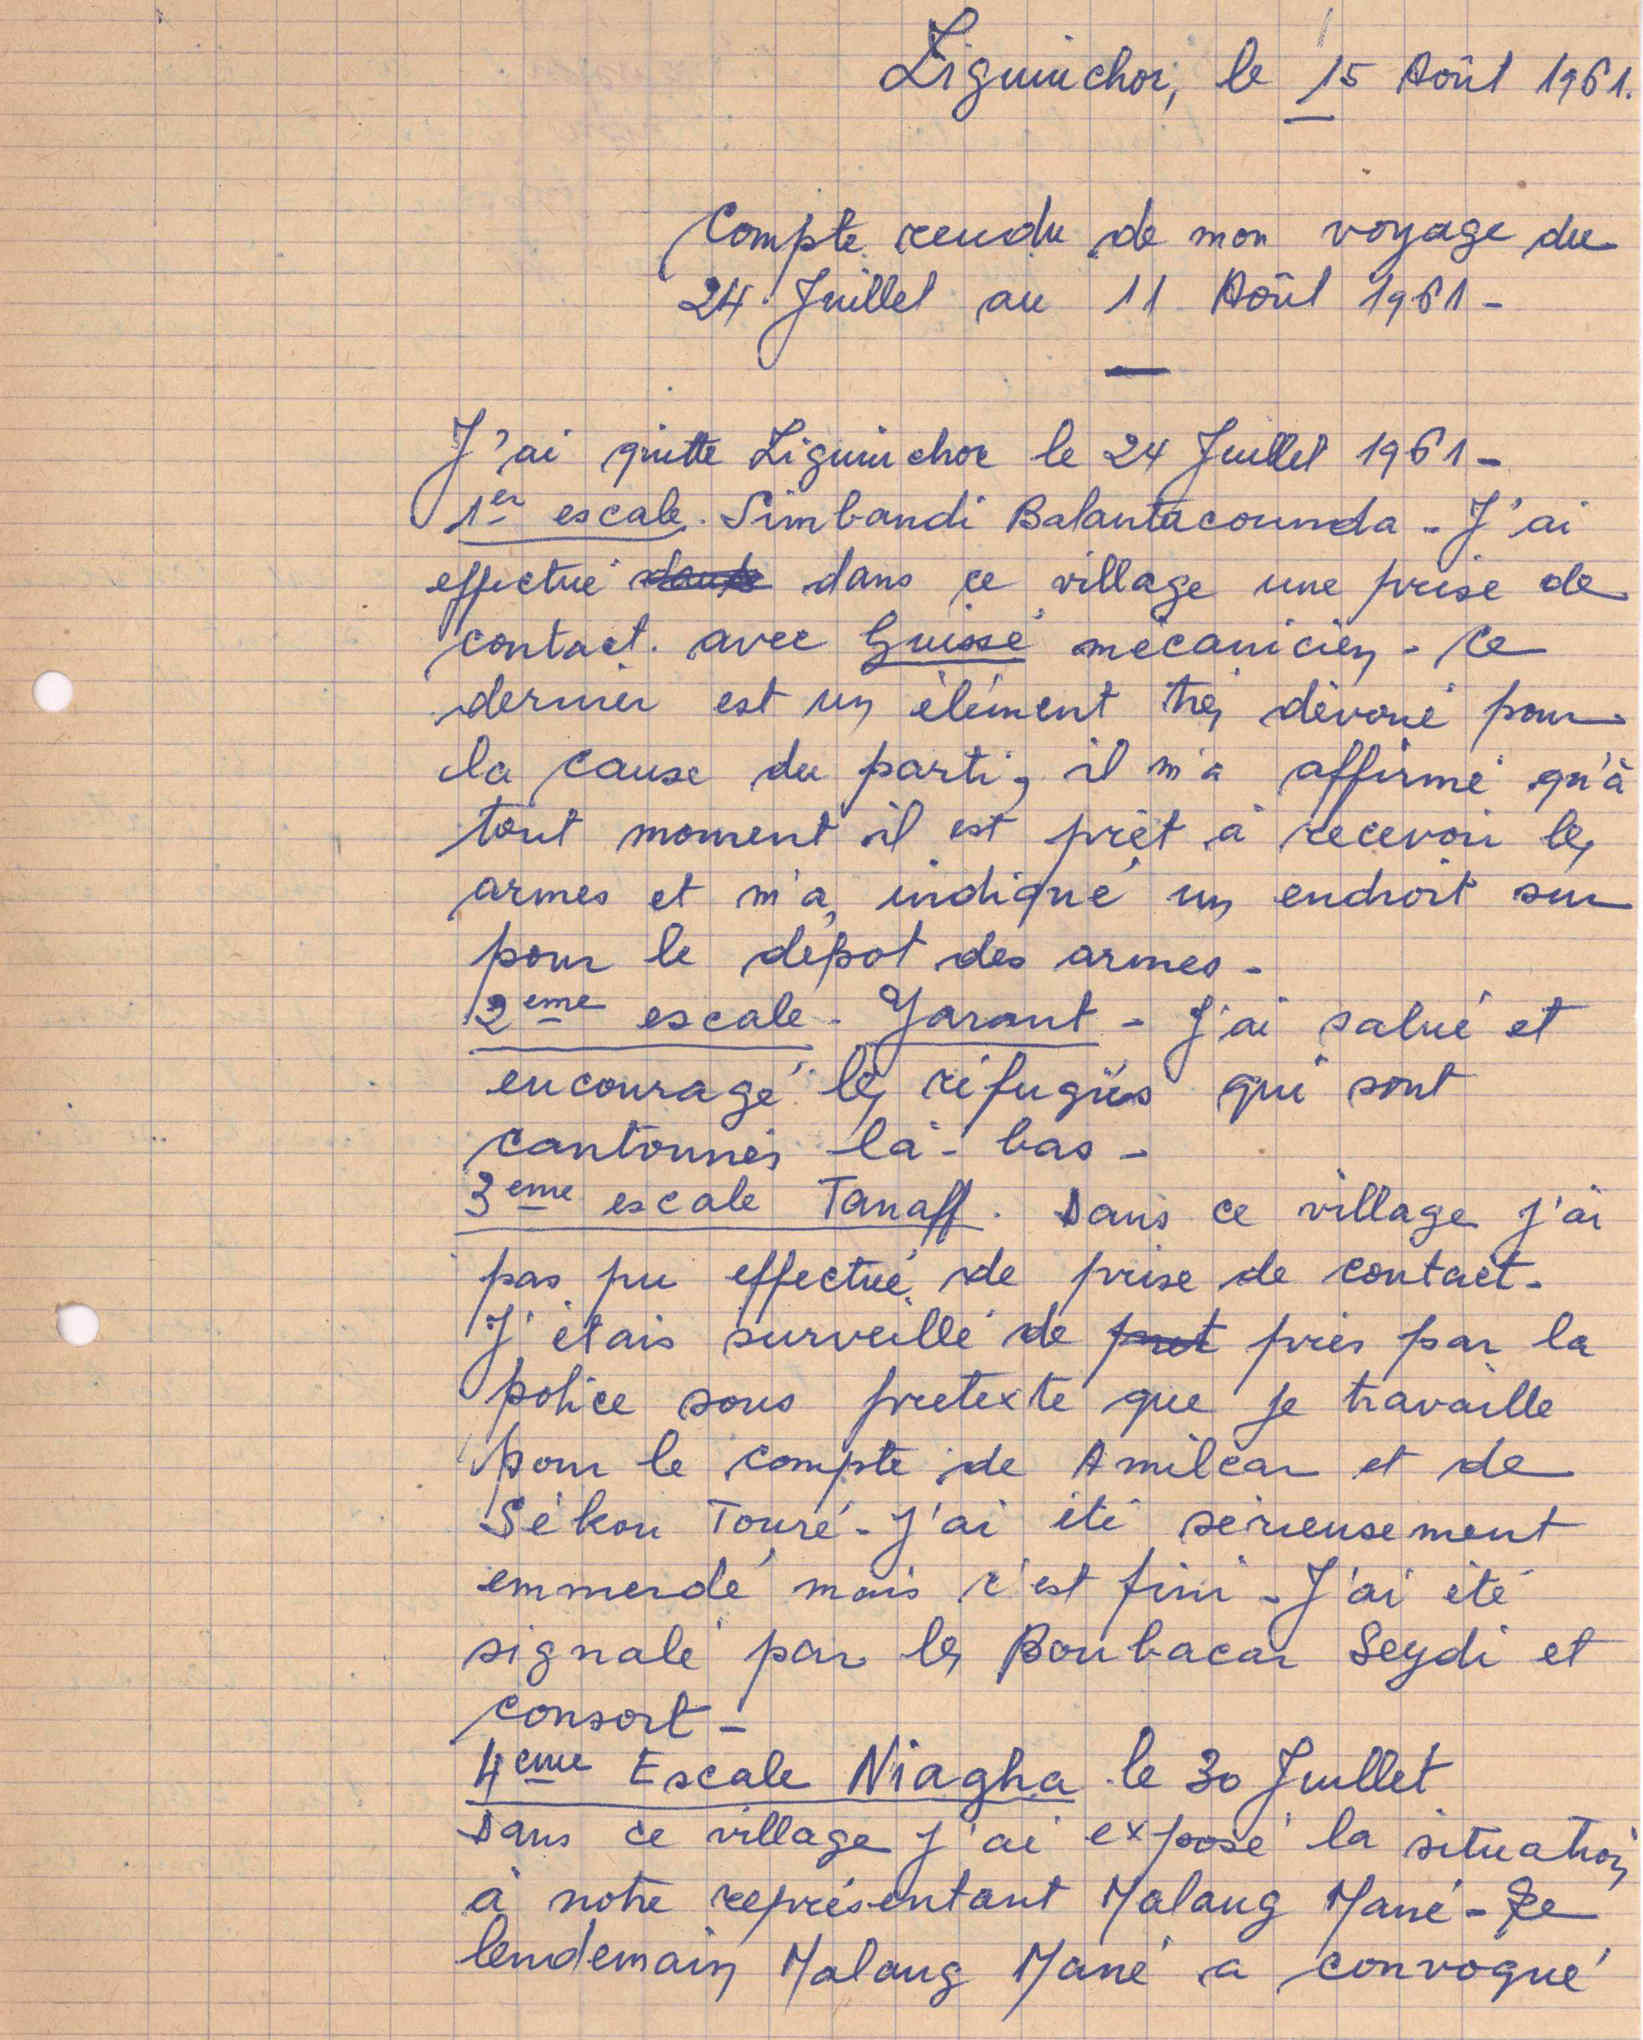 Ziguinchor, le 15 Août 1961.
Compte rendu de mon voyage du
24 Juillet au 11 Août 1961 -
J'ai quitte Ziguinchor le 24 Juillet 1961 -
1er escale. Simbandi Balantacounda - J'ai
effectué dans ce village une prise de
contact. avec Guissé mécanicien - Ce
dernier est un élément très dévoué pour
la cause du parti, il m'a affirmé qu'à
tout moment il est prêt à recevoir les
armes et m'a indiqué un endroit sur
pour le dépot des armes -
2eme escale - Yarant - J'ai salué et
encouragé les réfugiés qui sont
cantonnés là-bas -
3eme escale Tanaff. Dans ce village j'ai
pas pu effectué de prise de contact -
J'étais surveillé de près par la
police sous pretexte que je travaille
pour le compte de Amilcar et de
Sékou Touré - J'ai été sérieusement
emmerdé mais c'est fini - J'ai été
signalé par les Boubacar Seydi et
consort -
4eme Escale Niagha le 30 Juillet
Dans ce village j'ai exposé la situation
à notre représentant Malang Mané - Le
lendemain Malang Mané a convoqué